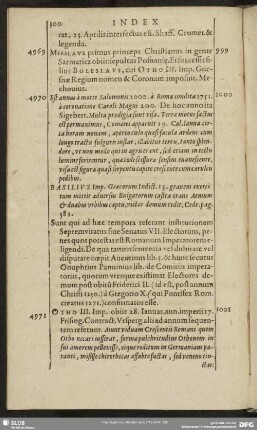 100 INDEX
rat, 23. Aprilis interfectus est. Skaff. Cromer. &
legenda.
4969 MIESLAVS primus princeps Christianus in gente 999
Sarmatica obiit: sepultus Posnaniæ. Ei successit fi-
lius BOLESLAVS, cui OTHO III. Imp. Gne-
snæ Regium nomen & Coronam imposuit. Me-
chouius.
4970 Est annus à morte Salomonis 2000. à Roma condita 1751. 1000
à coronatione Caroli Magni 200. De hoc anno ita
Sigebert. Multa prodigia sunt visa. Terræ motus factus
est permaximus, Cometa apparuit 19. Cal. Ianua. cir-
ca horam nonam, aperto cælo quasi facula ardens cum
longo tractu fulguris instar, illabitur terris, tanto splen-
dore, vt non modo qui in agris erant, sed etiam in tectis
lumine ferirentur, quæ cæli scissura sensim euanescente,
visa est figura quasi serpentis capite crescente cum cæruleis
pedibus.
BASILIVS Imp. Græcorum Indict. 15. grauem exerci-
tum mittit aduersus Bulgarorum castra trans Æmum
& duabus vrbibus captis, victor domum redit, Cedr. pag.
582.
Sunt qui ad hæc tempora referant institutionem
Septemuiratus siue Senatus VII. Electorum, pe-
nes quos potestas est Romanum Imperatorem e-
ligendi. De qua tamen sententia vel dubitare vel
disputare cœpit Auentinus lib. 5. & hunc secutus
Onuphrius Panuinus lib. de Comitiis impera-
toriis, quorum vterque existimat Electores de-
mum post obitũ Friderici II. (id est, post annum
Christi 1250.) à Gregorio X. (qui Pontifex Rom.
creatus 1272.) constitutos esse.
4971 OTHO III. Imp. obiit 28. Ianuar. ann. imperii 17. 1001
Frising. Contract. Vrsperg. alii ad annum sequen-
tem referunt. Aiunt viduam Crescentii Romani quem
Otho necari iusserat, forma pulchritudine Othonem in
sui amorem pellexisse, atque reditum in Germaniam pa-
ranti, misisse chirothecas affabre factas, sed veneno tin-
ctas:
SLUB
DFG